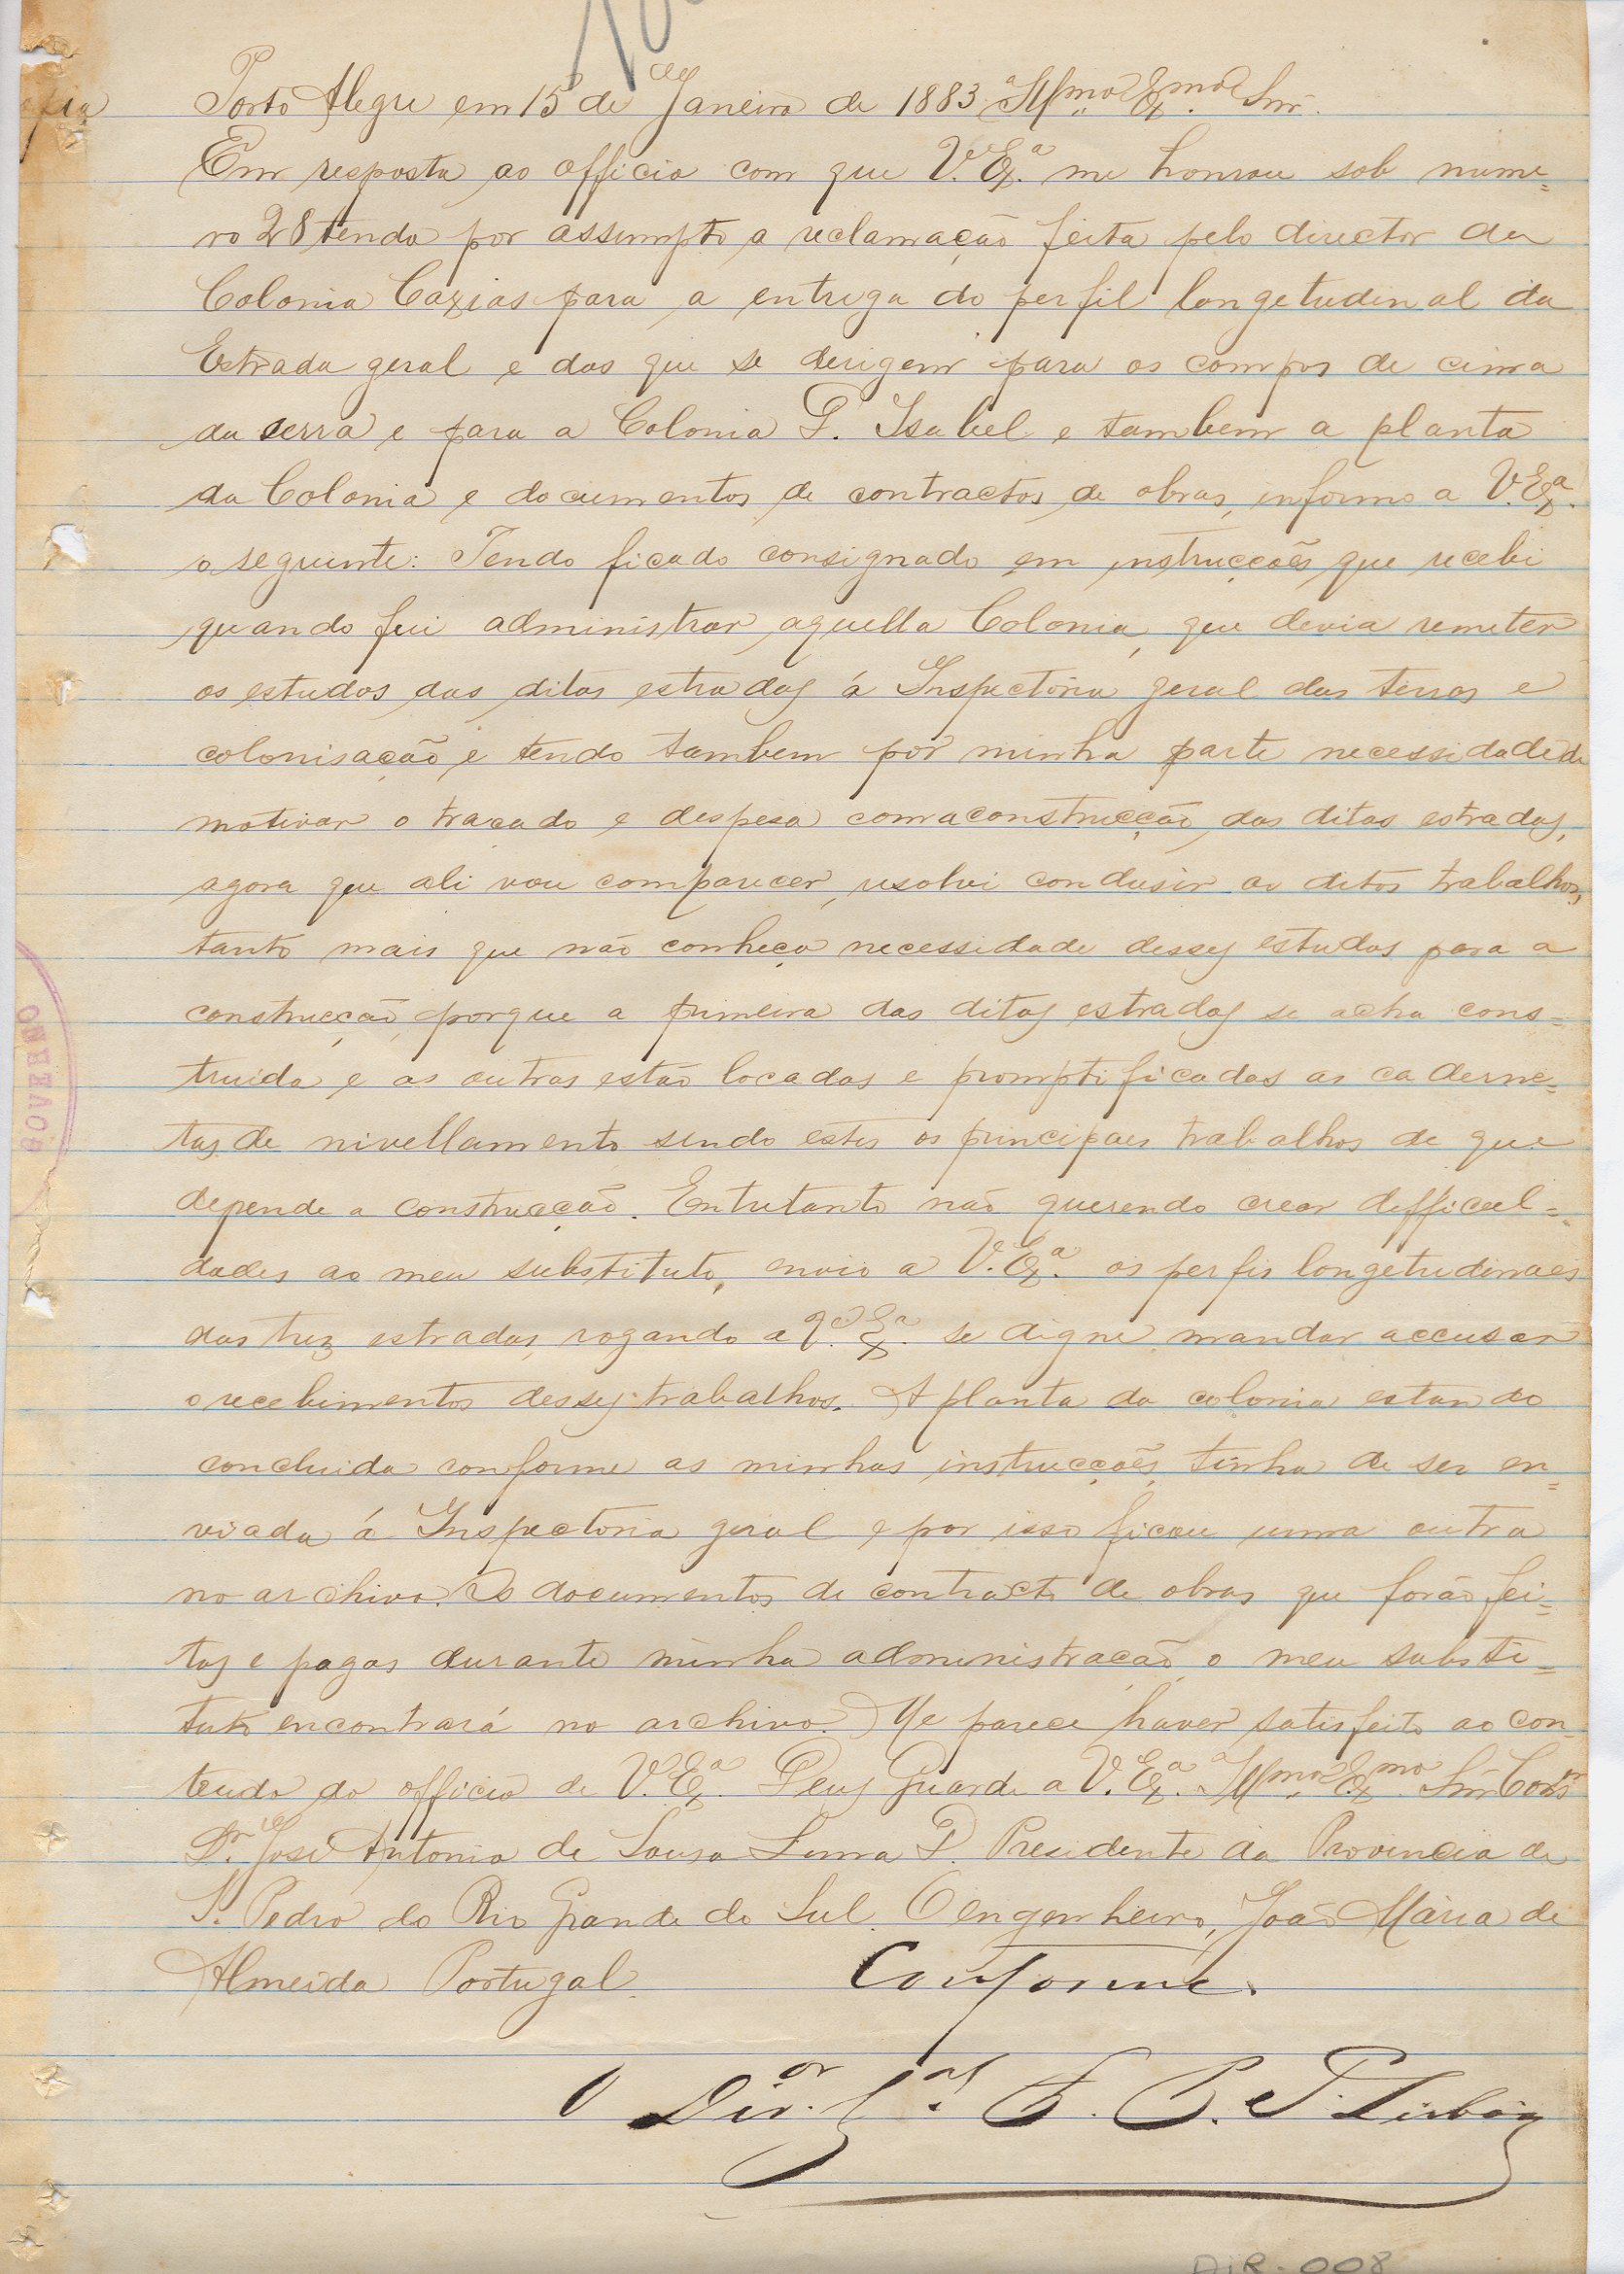 Copia
Porto Alegre em 15 de Janeiro de 1883. Illmo. Exmo. Snr.
Em resposta ao officio com que V. Exa. me honrou sob nume=
ro 28 tendo por assumpto a reclamação feita pelo director da
Colonia Caxias para a entrega do perfil longetudinal da
Estrada geral e das que se derigem para os campos de cima
da serra e para a Colonia D. Isabel e tambem a planta
da Colonia e documentos de contractos de obras, informo a V. Exa.
o seguinte: Tendo ficado consignado em instrucções que recebi
quando fui administrar aquella Colonia, que devia remeter
os estudos das ditas estradas á Inspectoria geral das terras e
colonisação e tendo tambem por minha parte necessidade de
motivar o tracado e despesa com a construcção das ditas estradas,
agora que ali vou comparecer, resolvi condusir os ditos trabalhos,
tanto mais que não conheço necessidade desses estudos para a
construcção, porque a primeira das ditas estradas se acha cons=
truida e as outras estão locadas e promptificadas as caderne=
tas de nivellamento sendo estes os principaes trabalhos de que
depende a construcção. Entretanto não querendo crear defficul=
dades ao meu substituto, envio a V. Exa. os perfis longetudinaes
das trez estradas, rogando a V. Exa. se digne mandar accusar
o recebimentos desses trabalhos. A planta da colonia estando
concluida conforme as minhas instrucções, tinha de ser en=
viada á Inspectoria geral e por isso ficou uma outra
no archivo. Os documentos de contracto de obras que forão fei=
tas e pagas durante minha administração o meu substi=
tuto encontrará no archivo. Me parece haver satisfeito ao con=
teudo do officio de V. Exa. Deus Guarde a V. Exa. Illmo. Exmo. Snr. Consr.
Dr. José Antonio de Sousa Lima D. Presidente da Provincia de
S. Pedro do Rio Grande do Sul. O engenheiro, João Maria de
Almeida Portugal.
Conforme.
O Dir.or G.al
GOVERNO
DIR-008